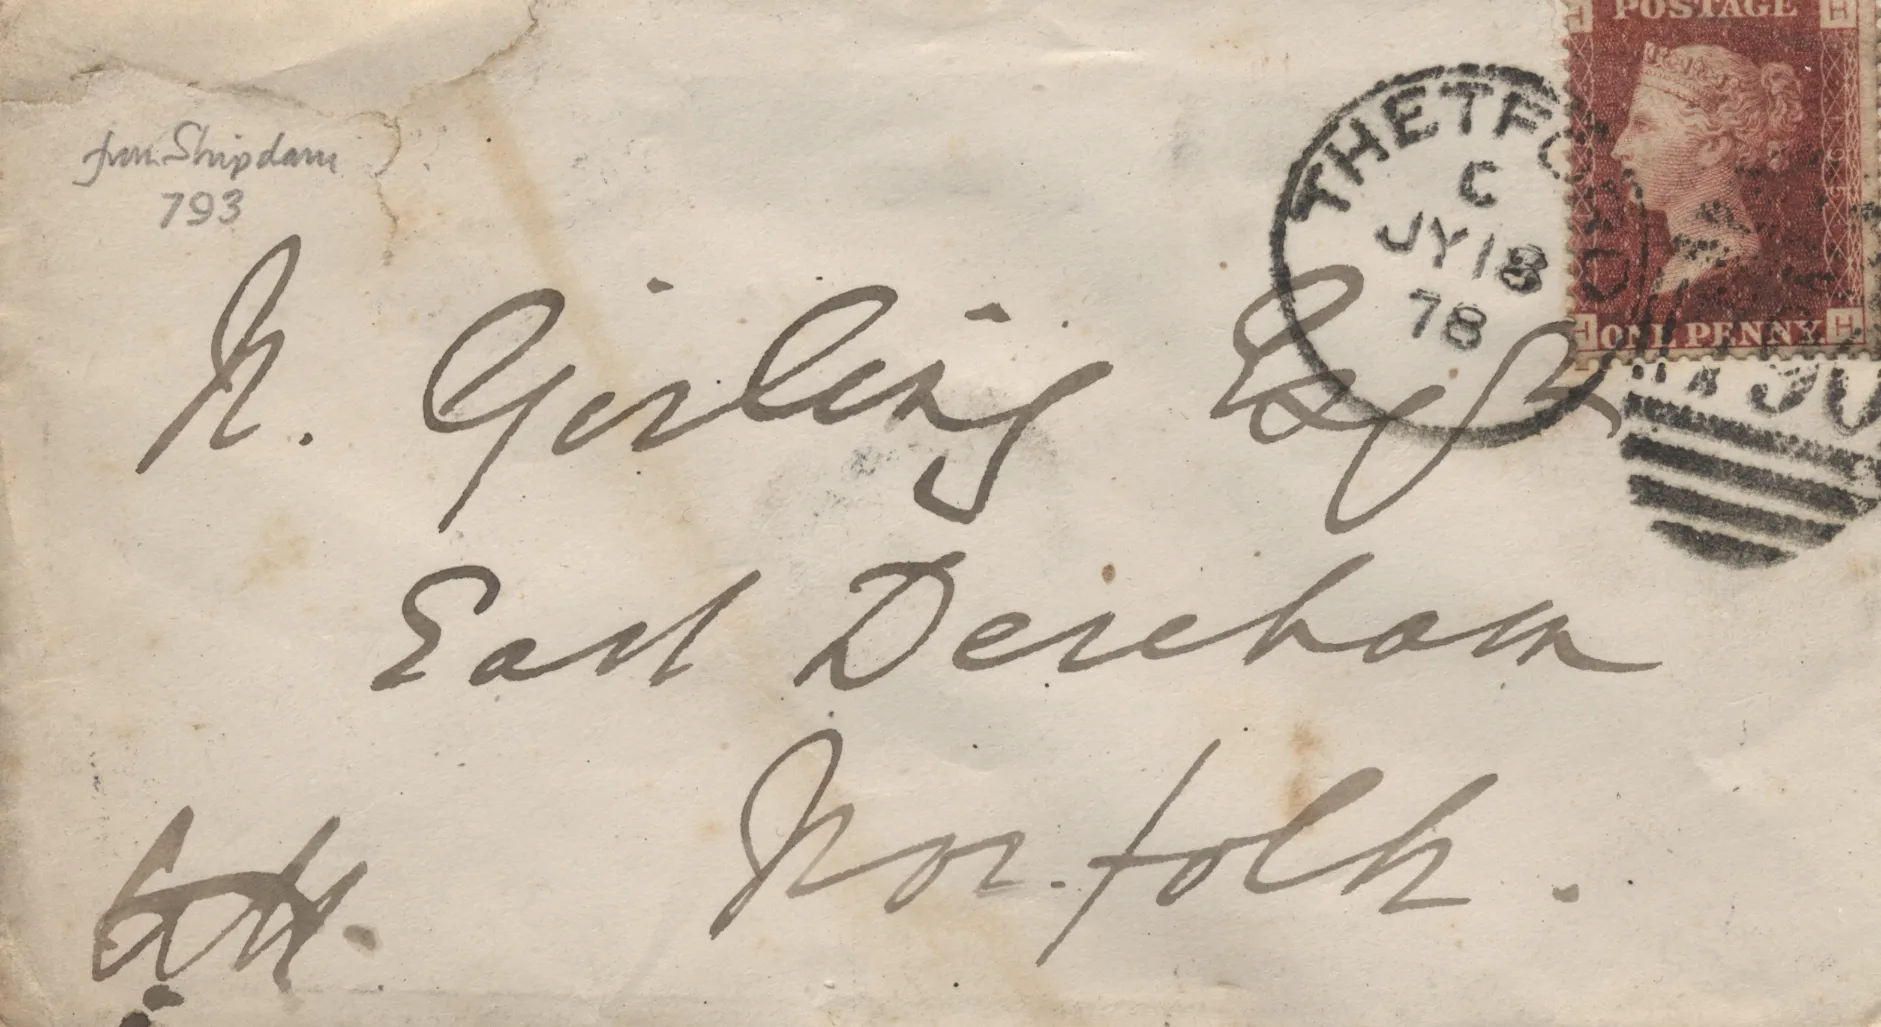 from Shipdam
793
N. Girling Esqr
East Dereham
Norfolk.
THETFORD
C
JY 18
78
POSTAGE
H H
ONE PENNY
H H